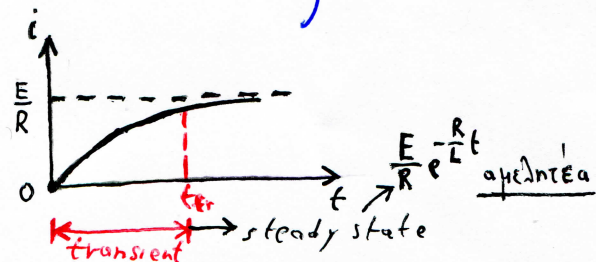 i
E/R
0
t_tr
t
transient
steady state
E/R e^{-R/L t} αμελητέα